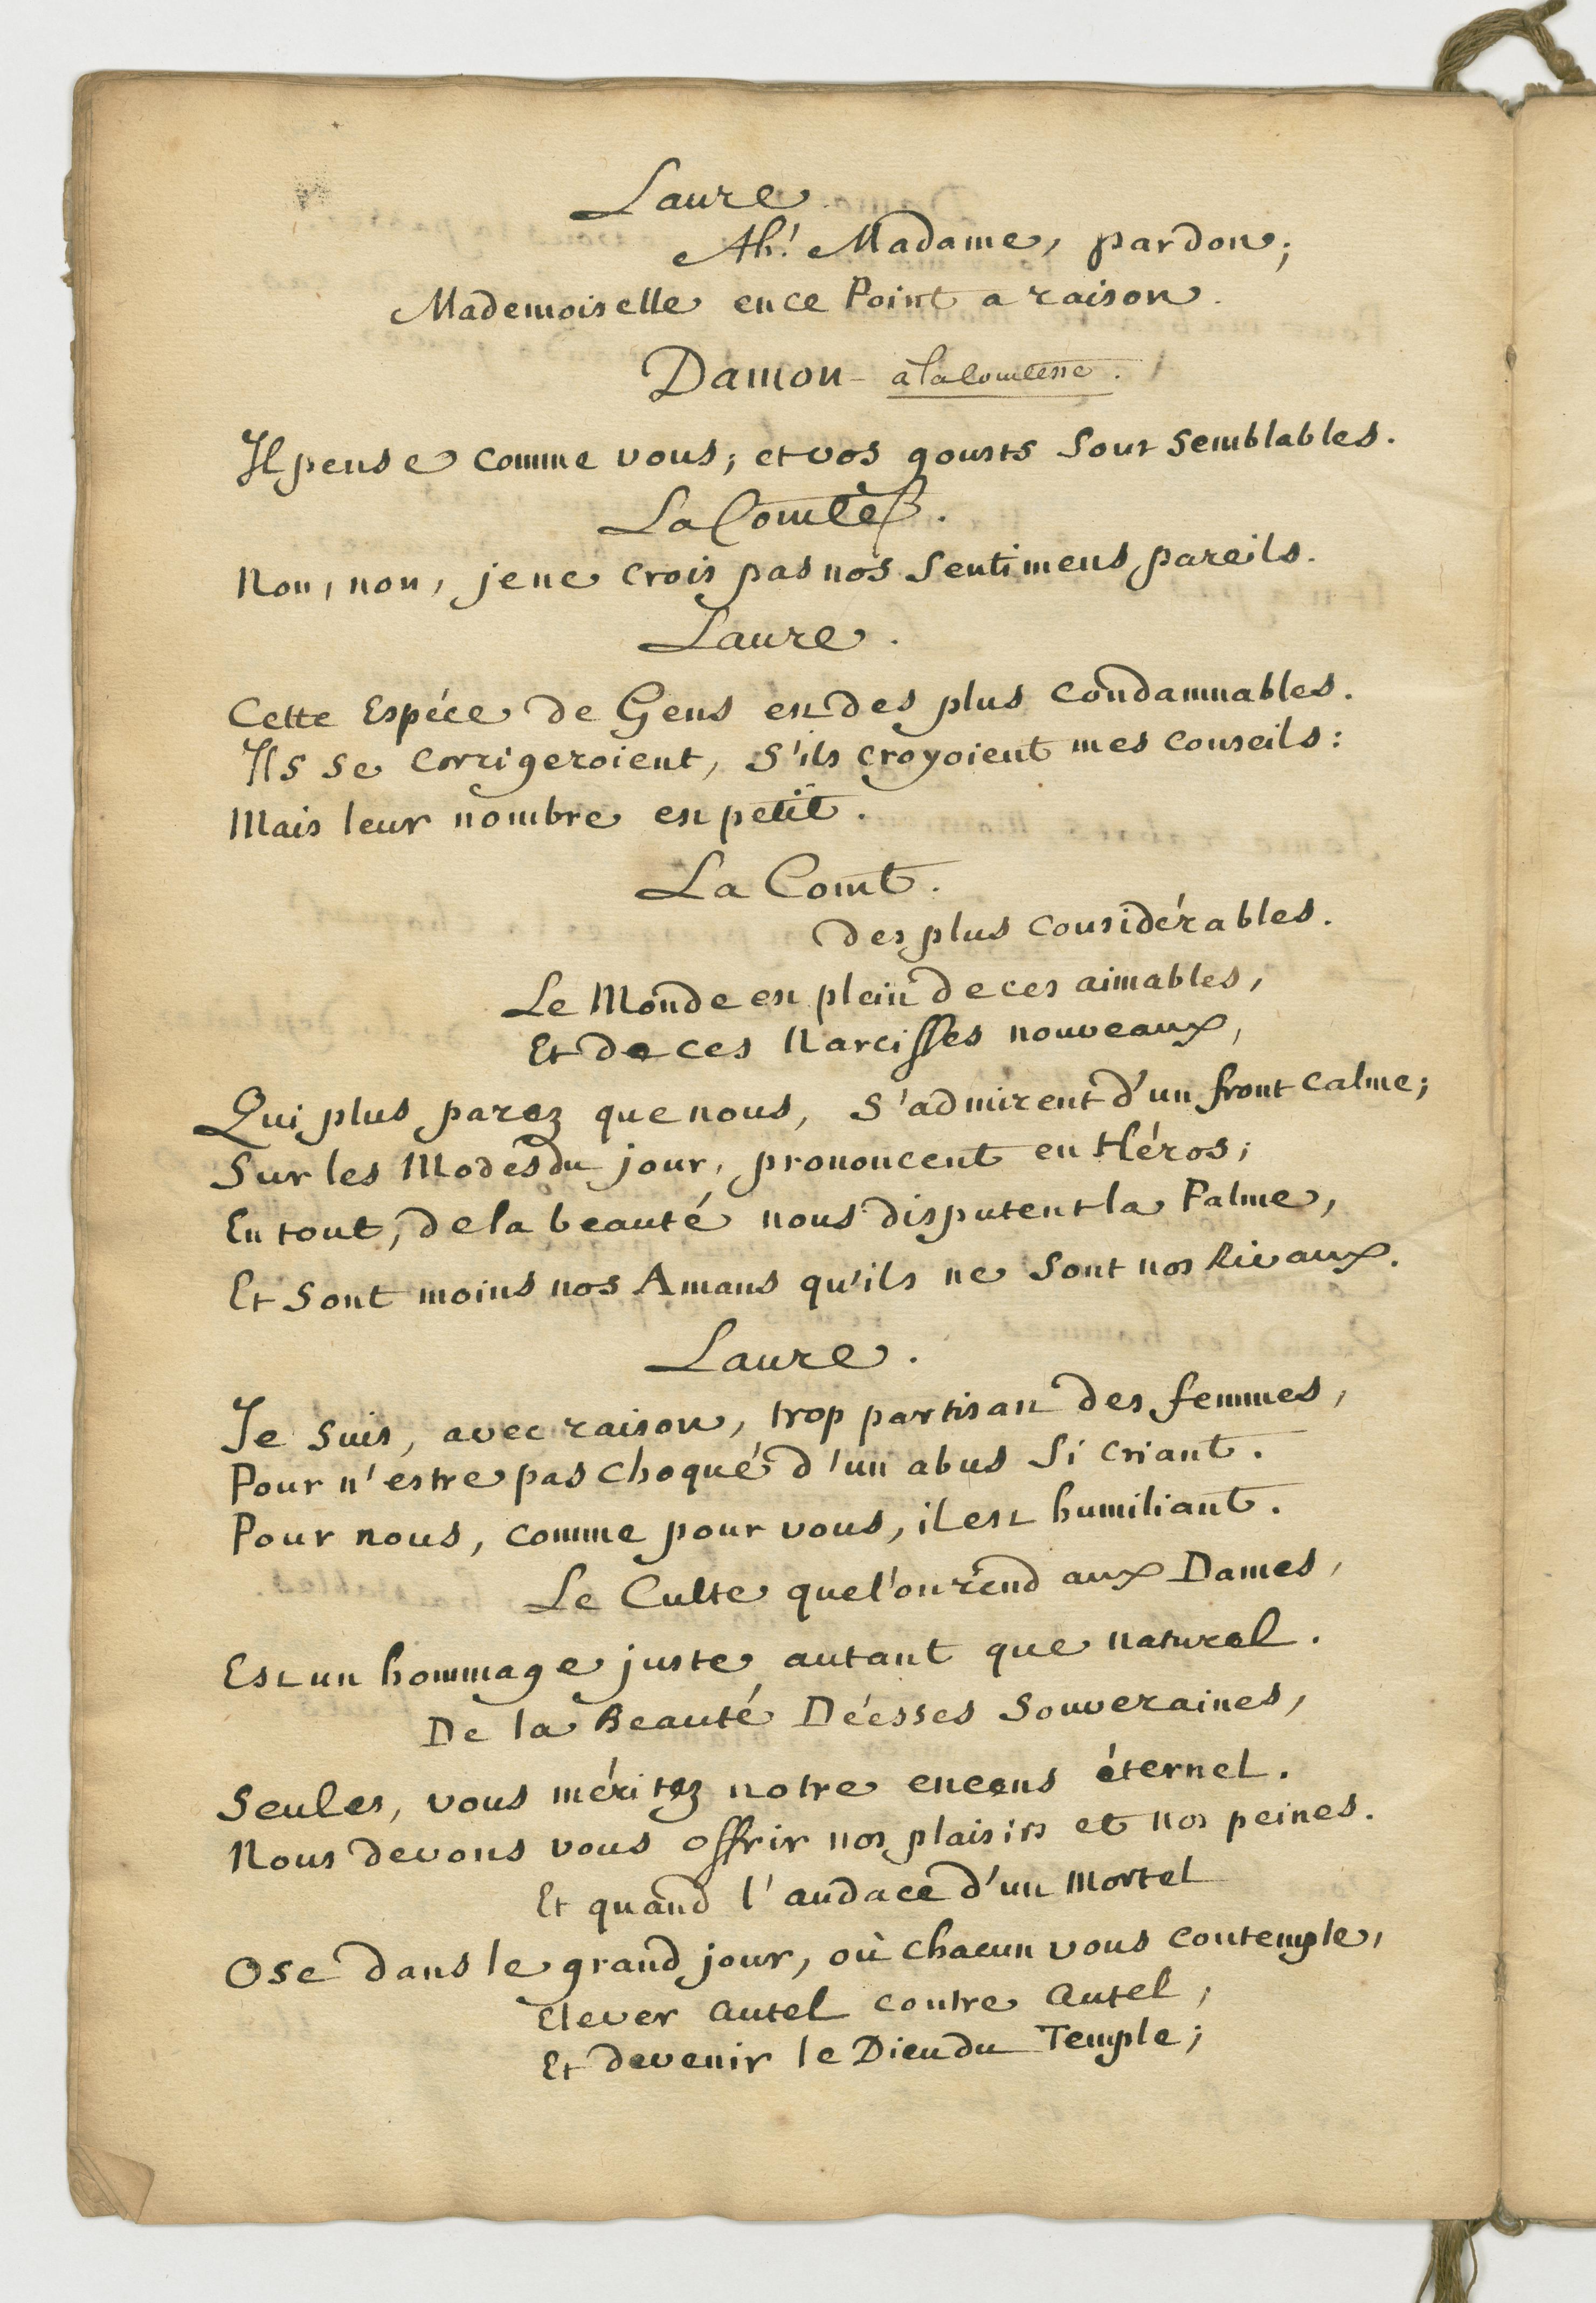 Laure.
Ah! Madame, pardon;
Mademoiselle en ce Point a raison.
Damon - à la Comtesse.
Il pense comme vous; et vos gousts sont semblables.
La Comtesse.
Non, non, je ne crois pas nos sentimens pareils.
Laure.
Cette Espéce de Gens est des plus condamnables.
Ils se corrigeroient, s'ils croyoient mes conseils:
Mais leur nombre est petit.
La Comt.
des plus considérables.
Le Monde est plein de ces aimables,
Et de ces Narcisses nouveaux,
Qui plus parez que nous, s'admirent d'un front calme;
Sur les Modes du jour, prononcent en Héros;
En tout, de la beauté nous disputent la Palme,
Et sont moins nos Amans qu'ils ne sont nos Rivaux.
Laure.
Je suis, avec raison, trop partisan des femmes,
Pour n'estre pas choqué d'un abus si criant.
Pour nous, comme pour vous, il est humiliant.
Le Culte que l'on rend aux Dames,
Est un hommage juste autant que naturel.
De la Beauté Déesses Souveraines,
Seules, vous méritez notre encens éternel.
Nous devons vous offrir nos plaisirs et nos peines.
Et quand l'audace d'un Mortel
Ose dans le grand jour, où chacun vous contemple,
Elever autel contre autel,
Et devenir le Dieu du Temple;